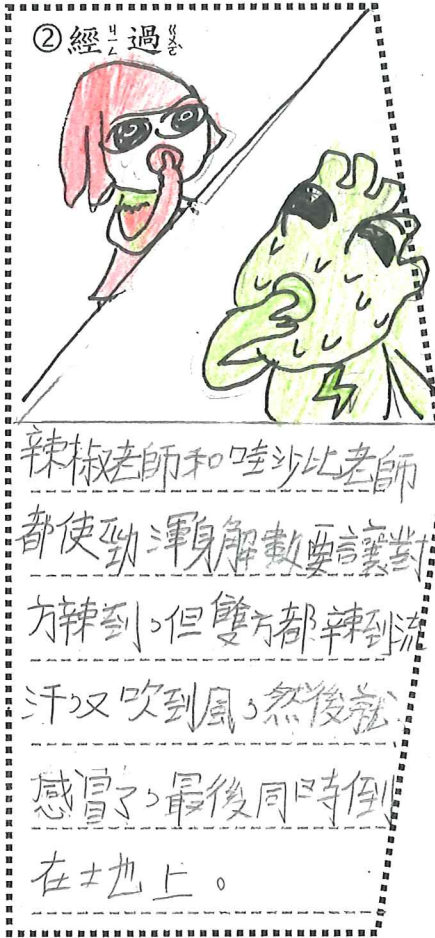 ②經ㄐㄧㄥ過ㄍㄨㄛˋ
辣椒老師和哇沙比老師
都使勁渾身解數要讓對
方辣到，但雙方都辣到流
汗，又吹到風，然後就
感冒了，最後同時倒
在地上。